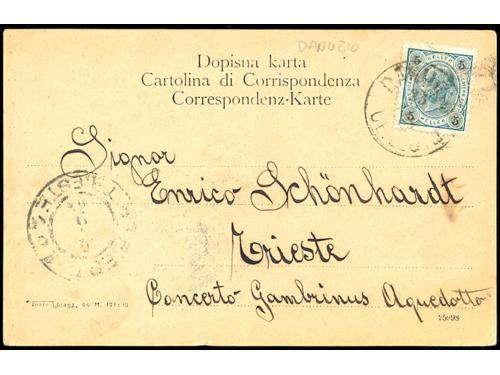 DANUBIO
Dopisna karta
Cartolina di Corrispondenza
Correspondenz-Karte
5 5
HELLER
5 5
Signor
Enrico Schönhardt
Trieste
Concerto Gambrinus Aquedotto
TRIEST TRIESTE
25098